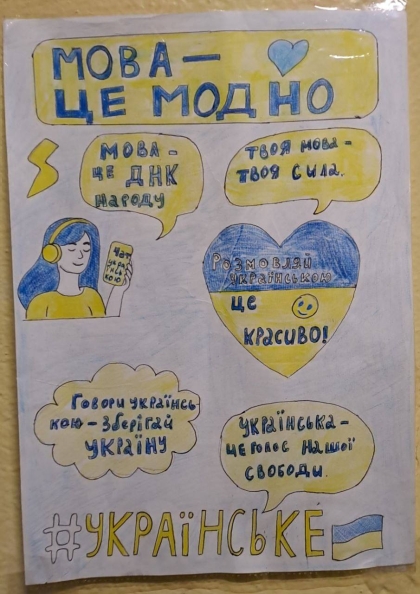 МОВА —
ЦЕ МОДНО
МОВА -
ЦЕ ДНК
НАРОДУ
ТВОЯ МОВА -
ТВОЯ СИЛА.
Чат
украї
нсь
кою
РОЗМОВЛЯЙ
УКРАЇНСЬКОЮ
ЦЕ
КРАСИВО!
ГОВОРИ УКРАЇНСЬ
КОЮ - ЗБЕРІГАЙ
УКРАЇНУ
УКРАЇНСЬКА -
ЦЕ ГОЛОС НАШОЇ
СВОБОДИ.
#УКРАЇНСЬКЕ